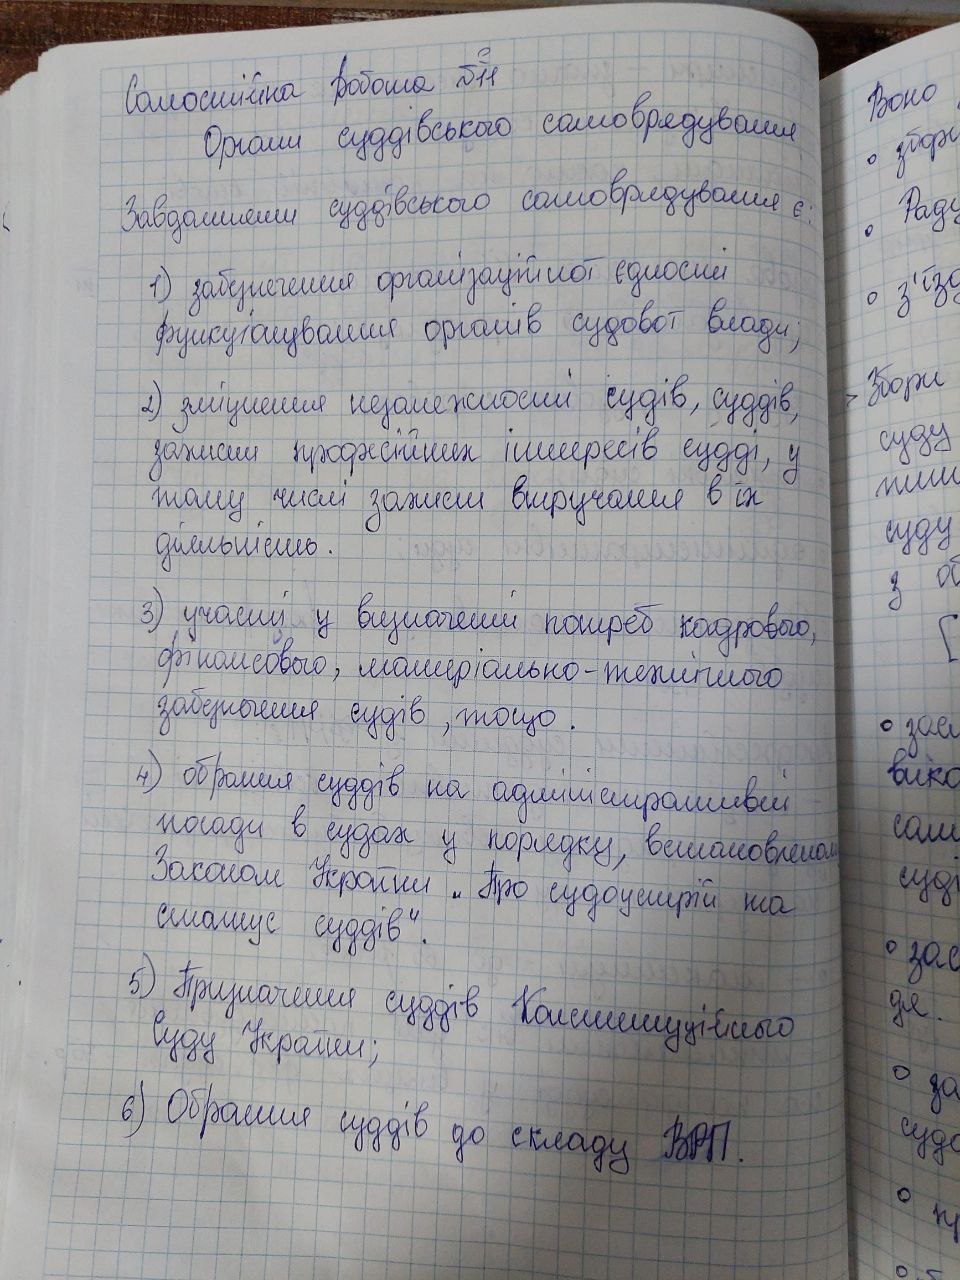 Самостійна робота №11
Органи суддівського самоврядування
Завданнями суддівського самоврядування є:
1) забезпечення організаційної єдності
функціонування органів судової влади;
2) зміцнення незалежності судів, суддів,
захисти професійних інтересів судді, у
тому числі захист втручання в їх
діяльність.
3) участі у визначенні потреб кадрового,
фінансового, матеріально-технічного
забезпечення судів, тощо.
4) обрання суддів на адміністративній
посади в судах у порядку, встановленом
Законом України „Про судоустрій та
статус суддів".
5) Призначення суддів Конституційного
Суду України;
6) Обрання суддів до складу ВРП.
Воно
• збори
• Раду
• з'їзд
Збори
суду
суду
з
[
•
•
• за
•